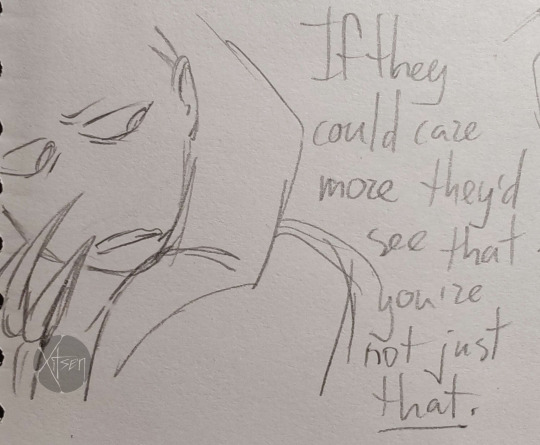 If they
could care
more they'd
see that
you're
not just
that.
Atsen